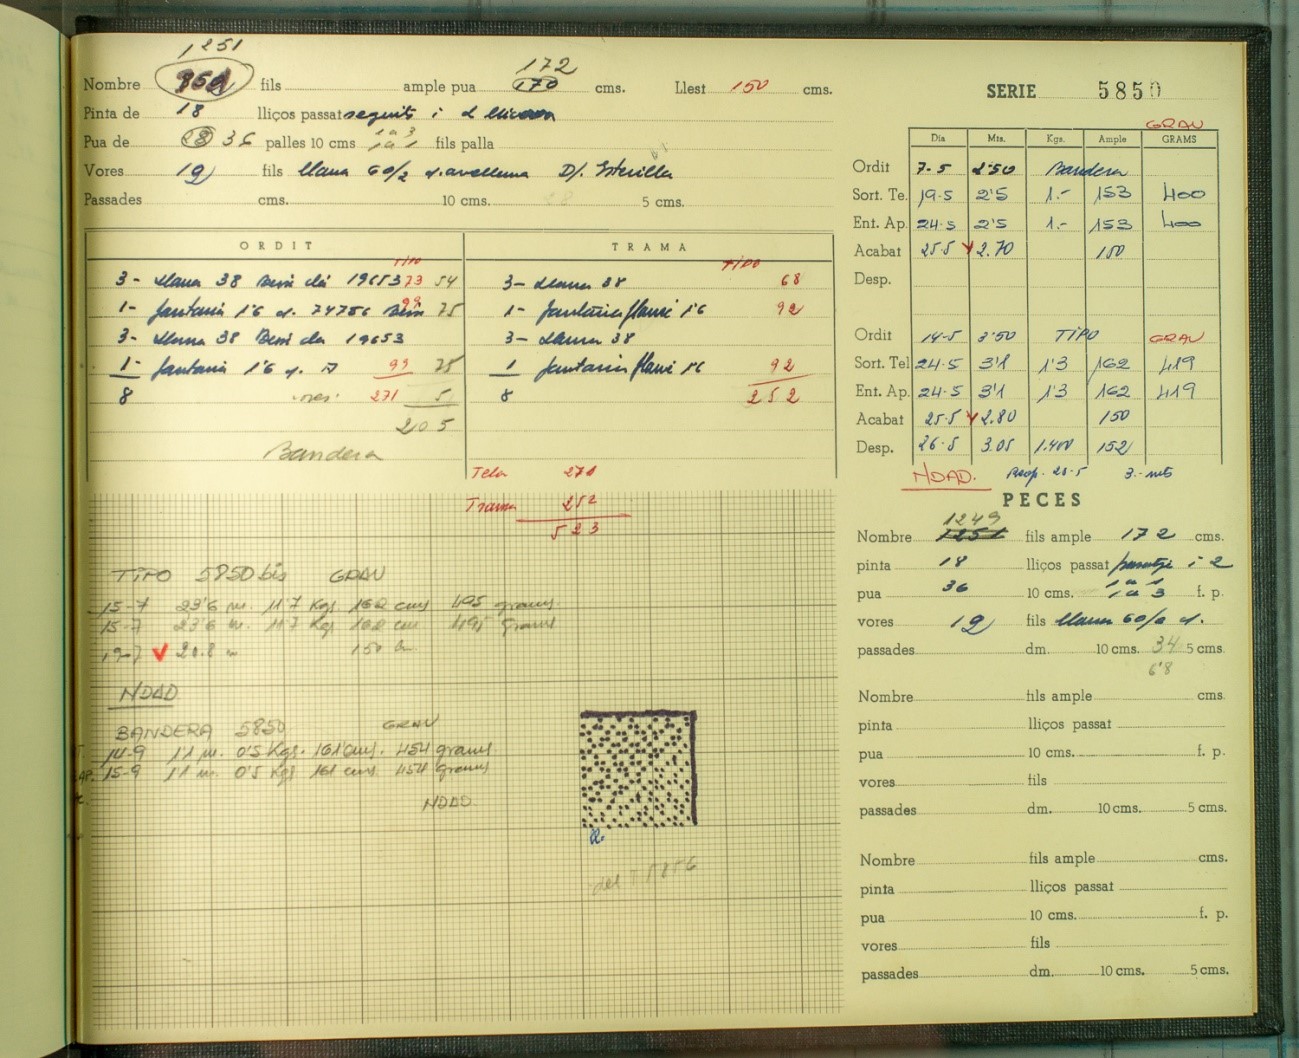 1251
Nombre 852 fils ample pua 172 170 cms. Llest 150 cms.
Pinta de 18 lliços passat seguits i 2
Pua de 28 36 palles 10 cms 1 a 3 1 a 1 fils palla
Vores 12 fils llana 60/2 d'avellana D/. Esterilla
Passades cms. 10 cms. 28 5 cms.
ORDIT
TIPO
3- Llana 38 19653 73 54
1- fantasia 1'6 d. 74756 99 75
3- Llana 38 19653
1 fantasia 1'6 d. 99 75
8 vores: 271 5
205
Bandera
TRAMA
TIPO
3- Llana 38 68
1- fantasia 1'6 92
3- Llana 38
1 fantasia 1'6 92
8 252
Tela 271
Trama 252
523
TIPO 5850 bis GRAU
15-7 23'6 m. 11'7 Kgs. 162 cms 495 grams
15-7 23'6 m. 11'7 Kgs 162 cm 495 grams
19-7 20.8 m 150 cm
NDAD
BANDERA 5850 GRAU
14-9 11 m. 0'5 Kgs. 161 cms. 454 grams
15-9 11 m. 0'5 Kgs 161 cms 454 grams
NDAD
del T 5856
SERIE 5850
GRAU
Dia Mts. Kgs. Ample GRAMS
Ordit 7-5 2'50 Bandera
Sort. Te. 19-5 2'5 1.- 153 400
Ent. Ap. 24-5 2'5 1.- 153 400
Acabat 25-5 2.70 150
Desp.
Ordit 14-5 3'50 TIPO GRAU
Sort. Tel 24-5 3'1 1'3 162 419
Ent. Ap. 24-5 3'1 1'3 162 419
Acabat 25-5 2.80 150
Desp. 26-5 3.05 1.400 152
NDAD. 25-5 3.- mts
PECES
1249
Nombre 1251 fils ample 172 cms.
pinta 18 lliços passat i 2
pua 36 10 cms. 1 a 1 1 a 3 f. p.
vores 12 fils llana 60/2 d.
passades dm. 10 cms. 34 5 cms.
6'8
Nombre fils ample cms.
pinta lliços passat
pua 10 cms. f. p.
vores fils
passades dm. 10 cms. 5 cms.
Nombre fils ample cms.
pinta lliços passat
pua 10 cms. f. p.
vores fils
passades dm. 10 cms. 5 cms.